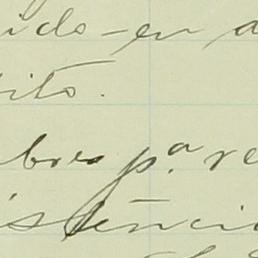 ido-en a
ito.
bres p.ª re
istencia